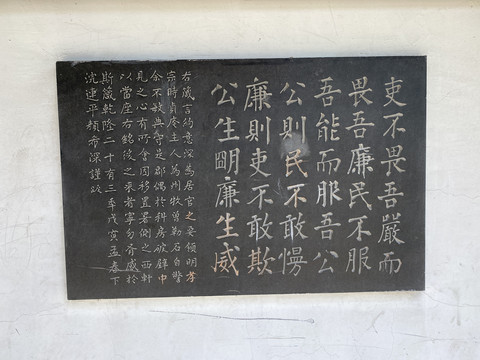 吏不畏吾嚴而
畏吾廉民不服
吾能而服吾公
公則民不敢慢
廉則吏不敢欺
公生朙廉生威
右箴言約意深為居官之要領明孝
宗時貞庵主人為州牧曾勒石自警
余不敏典守是郡偶於科房破壁中
見之心有所會因移置署側之西軒
以當座右銘後之來者寧勿有感於
斯箴乾隆二十有三季戊寅孟春下
浣連平顏希深謹跋